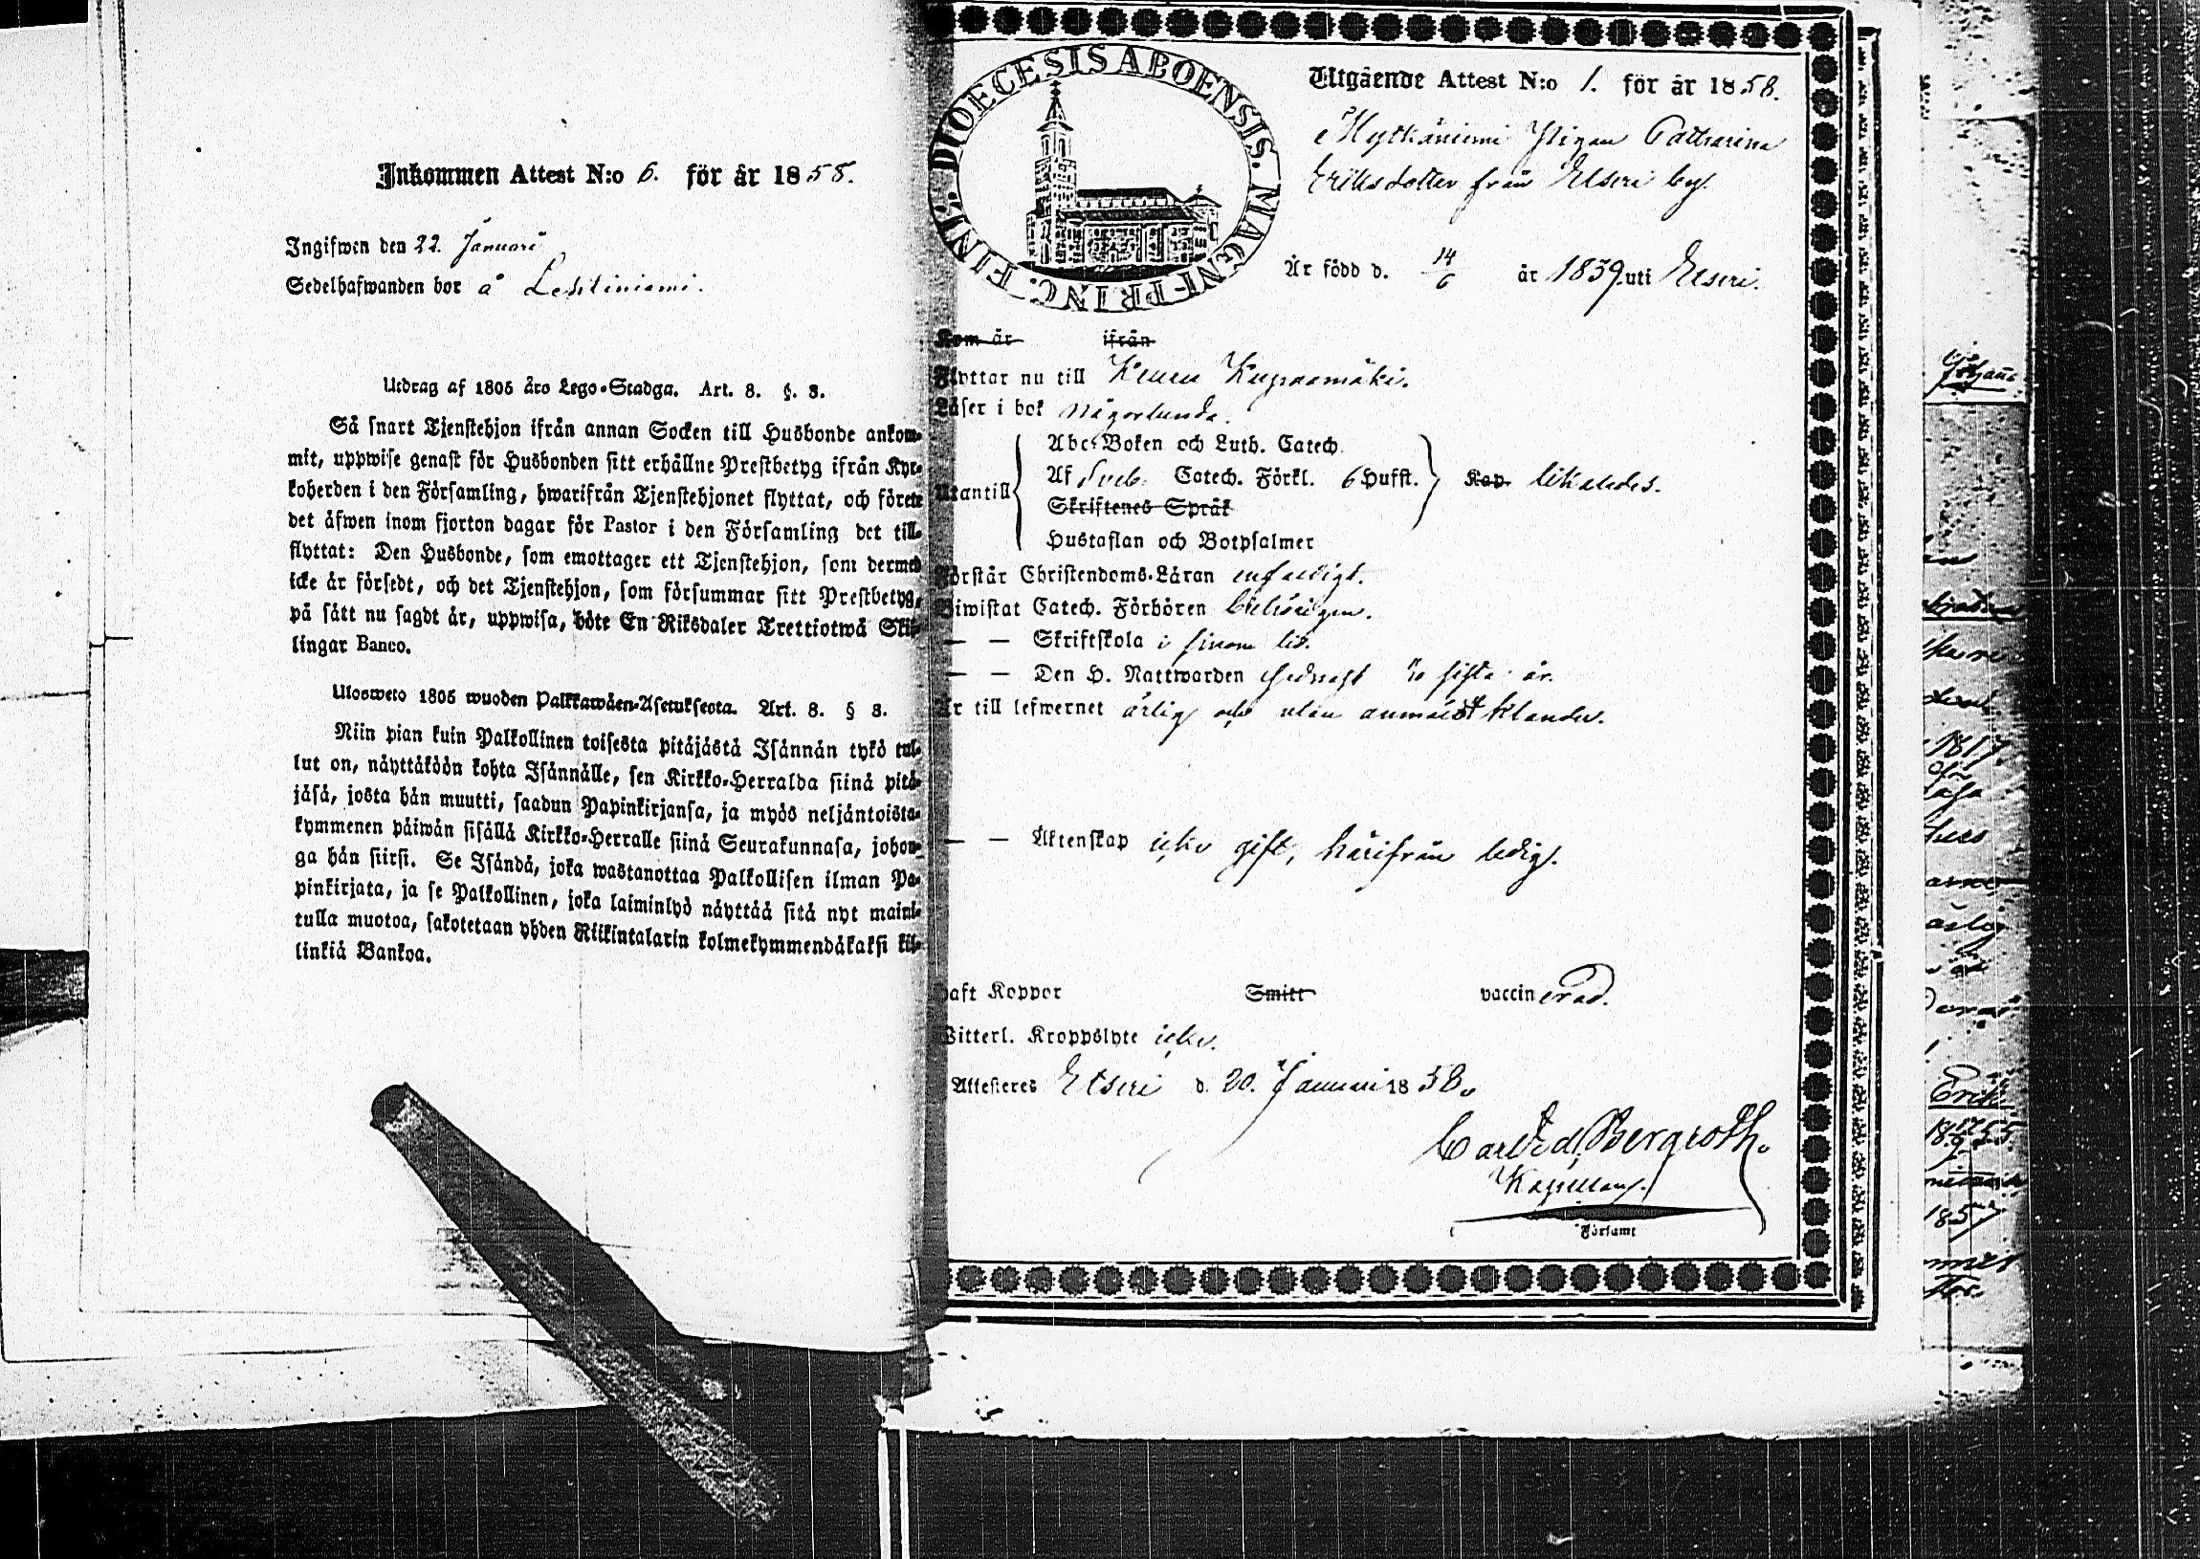 Inkommen Attest N:o 6. för år 1858.
Ingifwen den 22. Januari
Sedelhafwanden bor å Lehtiniemi.
Utdrag af 1805 års Lego-Stadga. Art. 8. §. 3.
Så snart Tjenstehjon ifrån annan Socken till Husbonde ankom-
mit, uppwise genast för Husbonden sitt erhållne Prestbetyg ifrån Kyr-
koherden i den Församling, hwarifrån Tjenstehjonet flyttat, och förete
det äfwen inom fjorton dagar för Pastor i den Församling det till-
flyttat: Den Husbonde, som emottager ett Tjenstehjon, som dermed
icke är försedt, och det Tjenstehjon, som försummar sitt Prestbetyg,
på sätt nu sagdt är, uppwisa, böte En Riksdaler Trettiotwå Skil-
lingar Banco.
Ulosweto 1805 wuoden Palkkawäen-Asetuksesta. Art. 8. § 3.
Niin pian kuin Palkollinen toisesta pitäjästä Isännän tykö tul-
lut on, näyttäköön kohta Isännälle, sen Kirkko-Herralda siinä pitä-
jäsä, josta hän muutti, saadun Papinkirjansa, ja myös neljäntoista-
kymmenen päiwän sisällä Kirkko-Herralle siinä Seurakunnasa, johon-
ga hän siirsi. Se Isändä, joka wastanottaa Palkollisen ilman Pa-
pinkirjata, ja se Palkollinen, joka laiminlyö näyttää sitä nyt maini-
tulla muotoa, sakotetaan yhden Riikintalarin kolmekymmendäkaksi kil-
linkiä Bankoa.
DIOECESIS ABOENSIS. MAGNI PRINC. FINL.
Utgående Attest N:o 1. för år 1858.
Mytkäniemi Pigan Catharina
Eriksdotter från Etseri by.
Är född d. 14/6 år 1839 uti Etseri.
Kom år ifrån
Flyttar nu till Keuru
Läser i bok någorlunda.
Abc-Boken och Luth. Catech.
Utantill Af Sveb. Catech. Förkl. 6 Hufst. Kap. likaledes.
Skriftenes Språk
Hustaflan och Botpsalmer
Förstår Christendoms-Läran enfaldigt.
Biwistat Catech. Förhören behörigen.
— — Skriftskola i sinom tid.
— — Den H. Nattwarden sista år.
Är till lefwernet ärlig och utan anmärkt klander.
— — Äktenskap icke gift, härifrån ledig.
Haft Koppor Smitt vaccinerad.
Witterl. Kroppslyte icke.
Attesteras Etseri d. 20. Januari 1858.
Carl Fed. Bergroth.
Kapellan.
Församl
Johans
1817
Erik
1855
1857